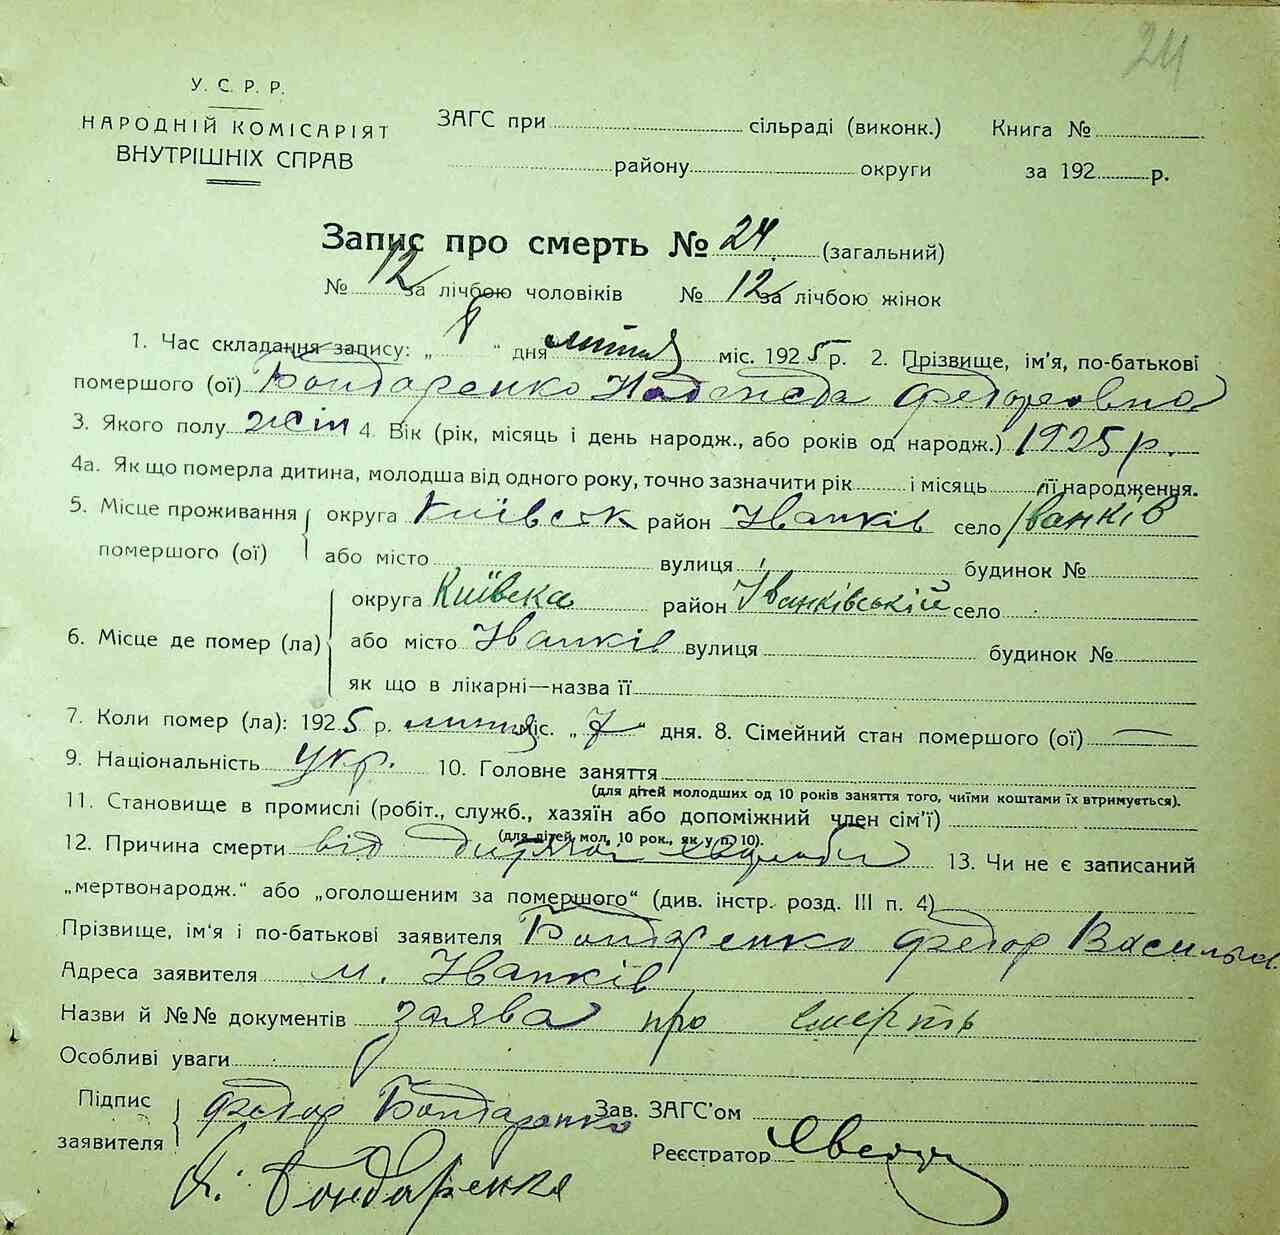 24
У. С. Р. Р.
НАРОДНІЙ КОМІСАРІЯТ
ВНУТРІШНІХ СПРАВ
ЗАГС при сільраді (виконк.) Книга №
району округи за 192 р.
Запис про смерть № 24 (загальний)
№ 12 за лічбою чоловіків № 12 за лічбою жінок
1. Час складання запису: „ 8 “ дня лютия міс. 1925 р. 2. Прізвище, ім'я, по-батькові
помершого (ої) Бондаренко Надежда Федоровна
3. Якого полу жін 4. Вік (рік, місяць і день народж., або років од народж.) 1925 р.
4а. Як що померла дитина, молодша від одного року, точно зазначити рік і місяць її народження.
5. Місце проживання помершого (ої) округа Київськ район Іванків село Іванків
або місто вулиця будинок №
6. Місце де помер (ла) округа Київска район Іванківський село
або місто Іванків вулиця будинок №
як що в лікарні—назва її
7. Коли помер (ла): 1925 р. міс. „ 7 “ дня. 8. Сімейний стан помершого (ої) —
9. Національність укр. 10. Головне заняття
(для дітей молодших од 10 років заняття того, чиїми коштами їх втримується).
11. Становище в промислі (робіт., служб., хазяїн або допоміжний член сім'ї)
(для дітей мол. 10 рок., як у п. 10).
12. Причина смерти від 13. Чи не є записаний
„мертвонародж.“ або „оголошеним за помершого“ (див. інстр. розд. III п. 4)
Прізвище, ім'я і по-батькові заявителя Бондаренко Федор Васильев.
Адреса заявителя м. Іванків
Назви й №№ документів заява про смерть
Особливі уваги
Підпис заявителя Федор Бондаренко Зав. ЗАГС'ом
Реєстратор
Бондаренко